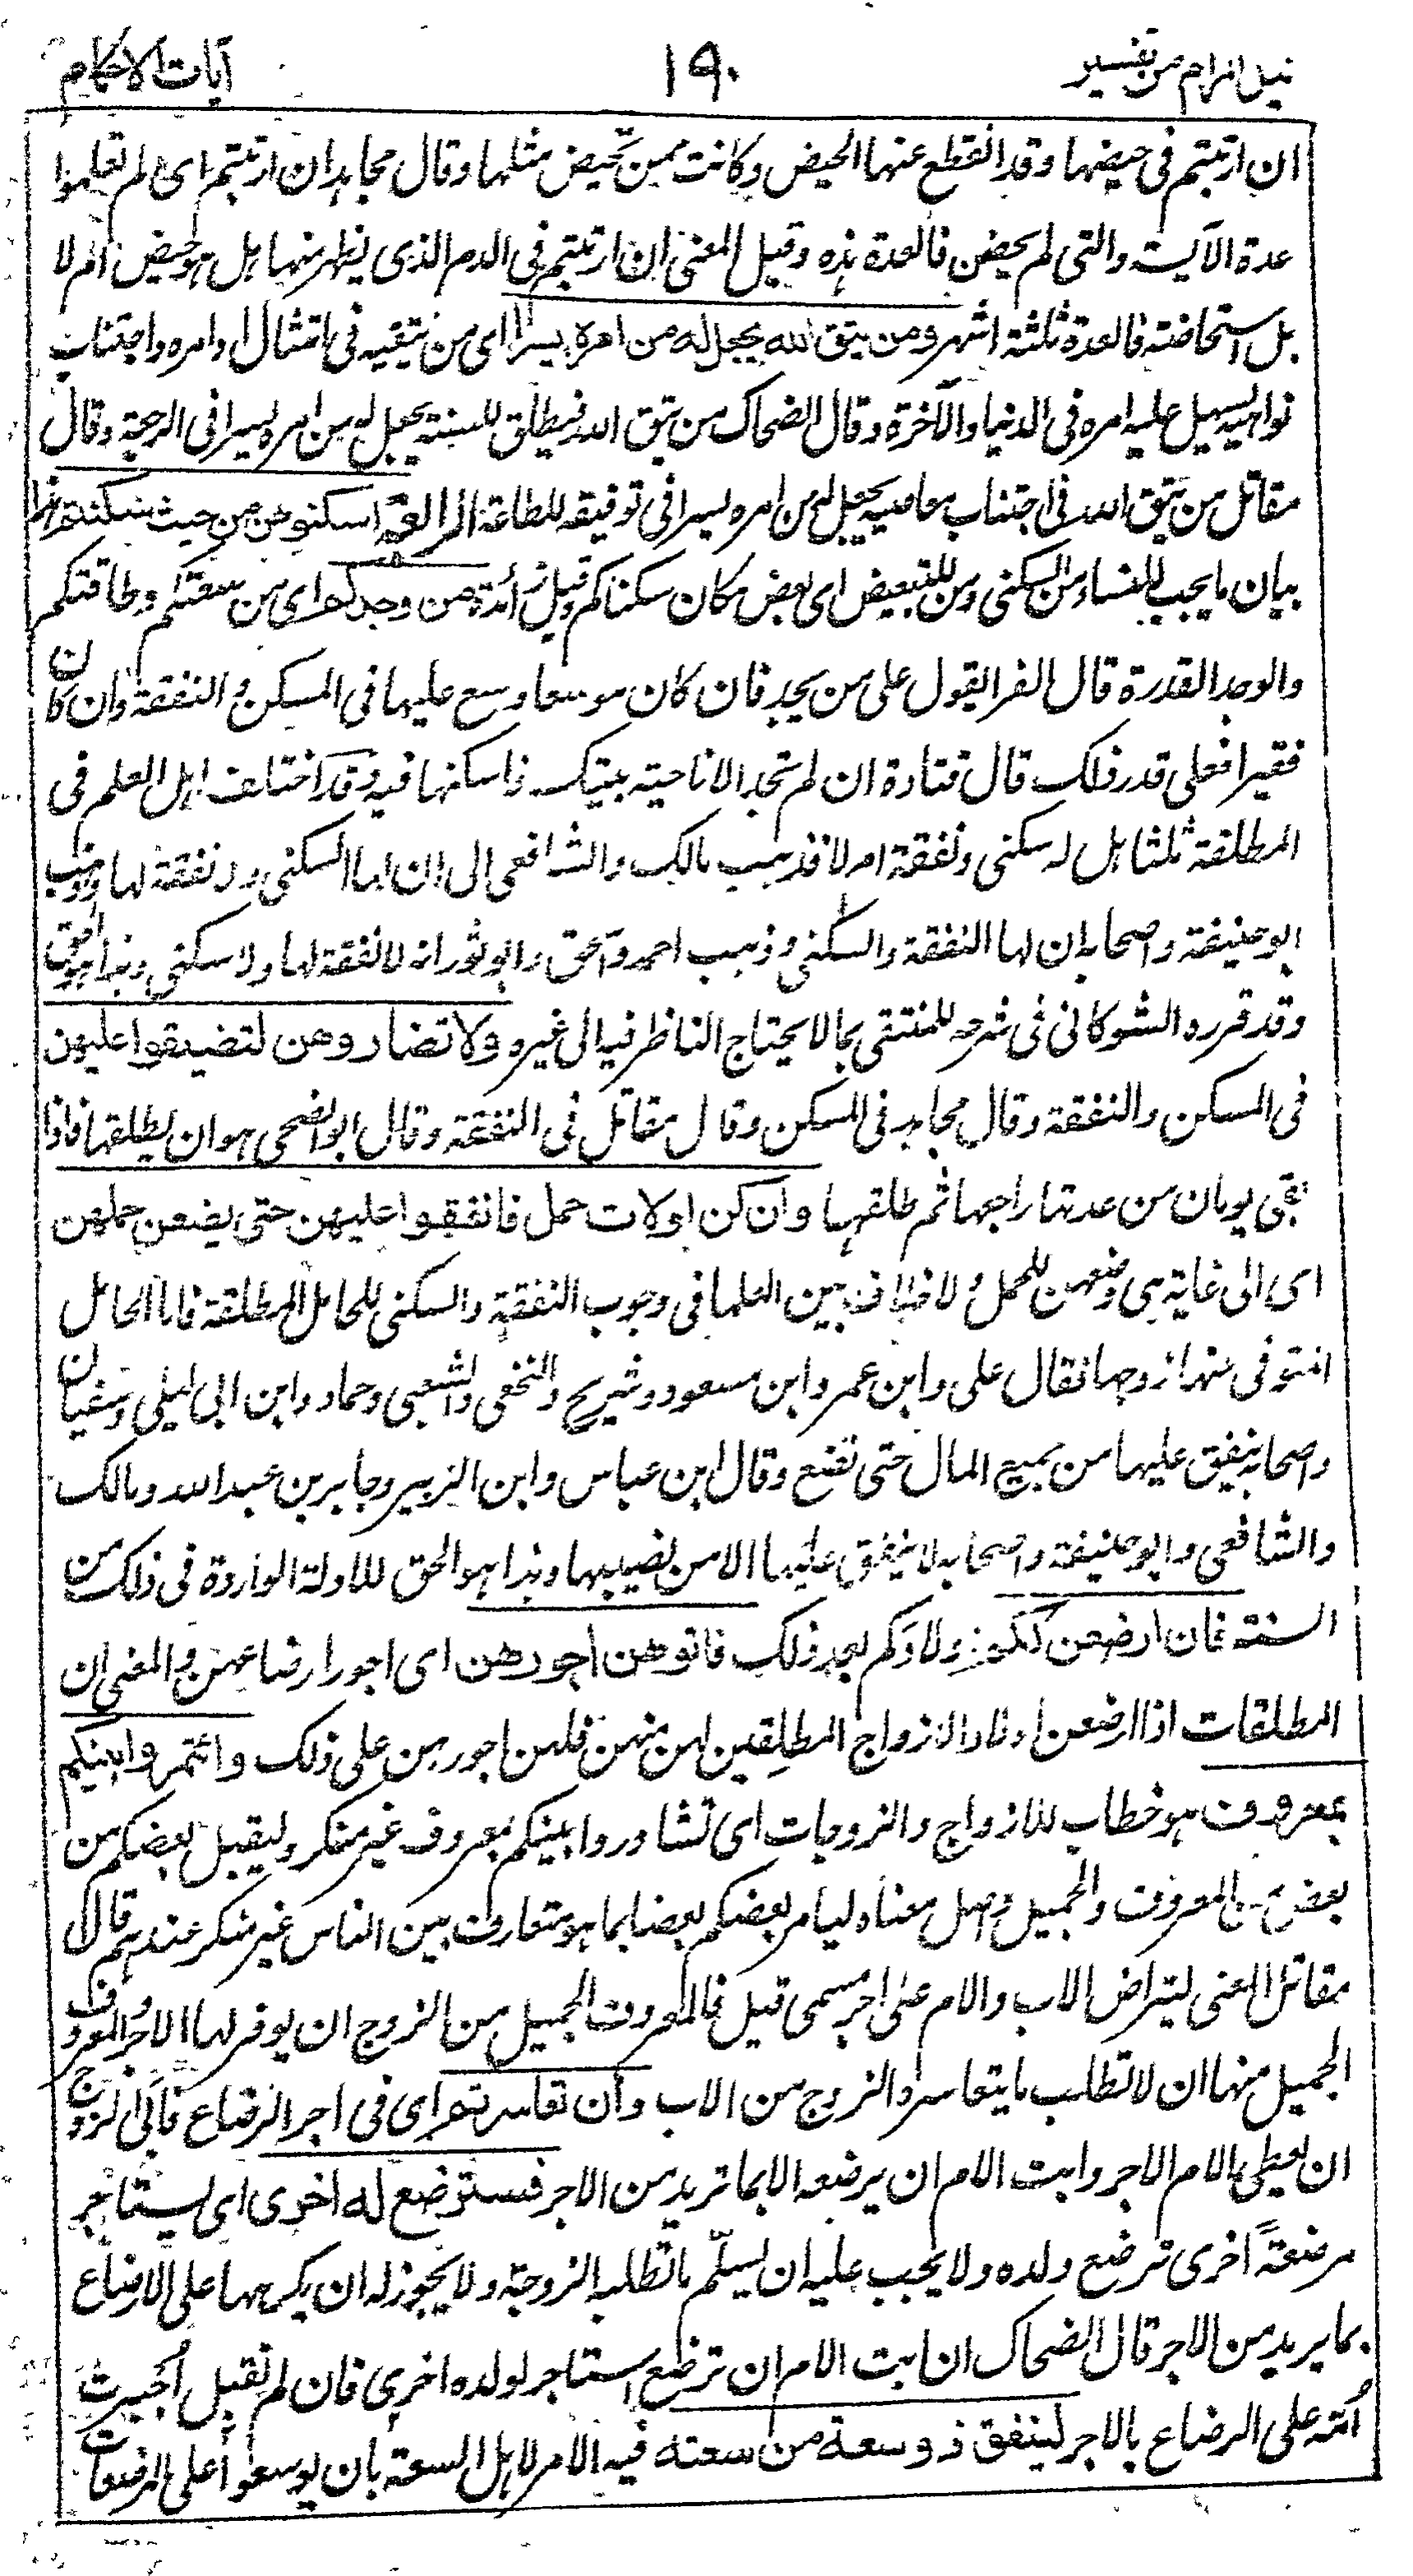 نيل المرام من تفسير ١٩٠ آيات الاحكام
ان ارتبتم فى حيضها وقد انقطع عنها الحيض وكانت ممن تحيض مثلها وقال مجاهد ان ارتبتم اى لم تعلموا
عدة الآيسة والتى لم يحضن فالعدة هذه وقيل المعنى ان ارتبتم فى الدم الذى يظهر منها هل هو حيض ام لا
بل استحاضة فالعدة ثلثة اشهر ومن يتق الله يجعل له من امره يسرا اى من يتقيه فى امتثال اوامره واجتناب
نواهيه يسهل عليه امره فى الدنيا والآخرة وقال الضحاك من يتق الله فيطلق للسنة يجعل له من امره يسرا فى الرجعة وقال
مقاتل من يتق الله فى اجتناب معاصيه يجعل له من امره يسرا فى توفيقه للطاعة الرابعة اسكنوهن من حيث سكنتم هذا
بيان ما يجب للنساء من السكنى ومن للتبعيض اى بعض مكان سكناكم وقيل زائدة من وجدكم اى من سعتكم وطاقتكم
والوجد القدرة قال الفرا يقول على من يجد فان كان موسعا وسع عليها فى المسكن والنفقة وان كان
فقيرا فعلى قدر ذلك قال قتادة ان لم تجد الا ناحية بيتك فاسكنها فيه وقد اختلف اهل العلم فى
المطلقة ثلثا هل له سكنى ونفقة ام لا فذهب مالك والشافعى الى ان لها السكنى ولا نفقة لها وذهب
ابو حنيفة واصحابه ان لها النفقة والسكنى وذهب احمد واسحق وابو ثور انه لا نفقة لها ولا سكنى وهذا هو الحق
وقد قرره الشوكانى فى شرحه للمنتقى بما لا يحتاج الناظر فيه الى غيره ولا تضاروهن لتضيقوا عليهن
فى المسكن والنفقة وقال مجاهد فى المسكن وقال مقاتل فى النفقة وقال ابو الضحى هو ان يطلقها فاذا
بقى يومان من عدتها راجعها ثم طلقها وان كن اولات حمل فانفقوا عليهن حتى يضعن حملهن
اى الى غاية هى وضعهن للحمل ولا خلاف بين العلما فى وجوب النفقة والسكنى للحامل المطلقة فاما الحامل
المتوفى عنها زوجها فقال على وابن عمر وابن مسعود وشريح والنخعى والشعبى وحماد وابن ابى ليلى وسفيان
واصحابه ينفق عليها من جميع المال حتى تضع وقال ابن عباس وابن الزبير وجابر بن عبد الله ومالك
والشافعى وابو حنيفة واصحابه لا ينفق عليها الا من نصيبها وهذا هو الحق للادلة الواردة فى ذلك من
السنة فان ارضعن لكم اولادكم بعد ذلك فاتوهن اجورهن اى اجور ارضاعهن والمعنى ان
المطلقات اذا ارضعن اولاد الازواج المطلقين لهن منهن فلهن اجورهن على ذلك وائتمروا بينكم
بمعروف هو خطاب للازواج والزوجات اى تشاوروا بينكم بمعروف غير منكر وليقبل بعضكم من
بعض من المعروف والجميل واصل معناه ليامر بعضكم بعضا بما هو متعارف بين الناس غير منكر عندهم قال
مقاتل المعنى ليتراض الاب والام على اجر مسمى قيل فالمعروف الجميل من الزوج ان يوفر لها الاجر والمعروف
الجميل منها ان لا تطلب ما يتعاسره الزوج من الاب وان تعاسرتم اى فى اجر الرضاع فابى الزوج
ان يعطى بالام الاجر وابت الام ان يرضعه الا بما تريد من الاجر فسترضع له اخرى اى يستاجر
مرضعة اخرى ترضع ولده ولا يجب عليه ان يسلم ما تطلبه الزوجة ولا يجوز له ان يكرهها على الارضاع
بما يريد من الاجر قال الضحاك ان ابت الام ان ترضع استاجر لولده اخرى فان لم تقبل اجبرت
امه على الرضاع بالاجر لينفق ذو سعة من سعته فيه الامر لاهل السعة بان يوسعوا على المرضعات